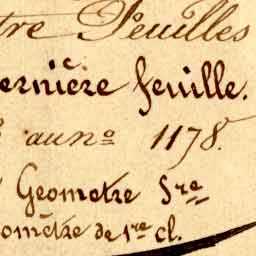 tre Feuilles
ernière feuille.
au no 1178.
Géometre Sre
omètre de 1re cl.